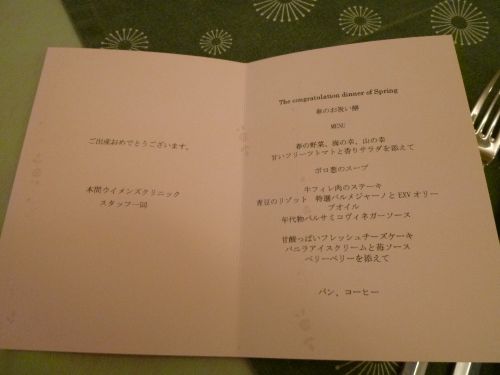 ご出産おめでとうございます。
本間ウイメンズクリニック
スタッフ一同
The congratulation dinner of Spring
春のお祝い膳
MENU
春の野菜、海の幸、山の幸
甘いフリーツトマトと香りサラダを添えて
ポロ葱のスープ
牛フィレ肉のステーキ
青豆のリゾット　特選パルメジャーノと EXV オリー
ブオイル
年代物バルサミコヴィネガーソース
甘酸っぱいフレッシュチーズケーキ
バニラアイスクリームと苺ソース
ベリーベリーを添えて
パン、コーヒー